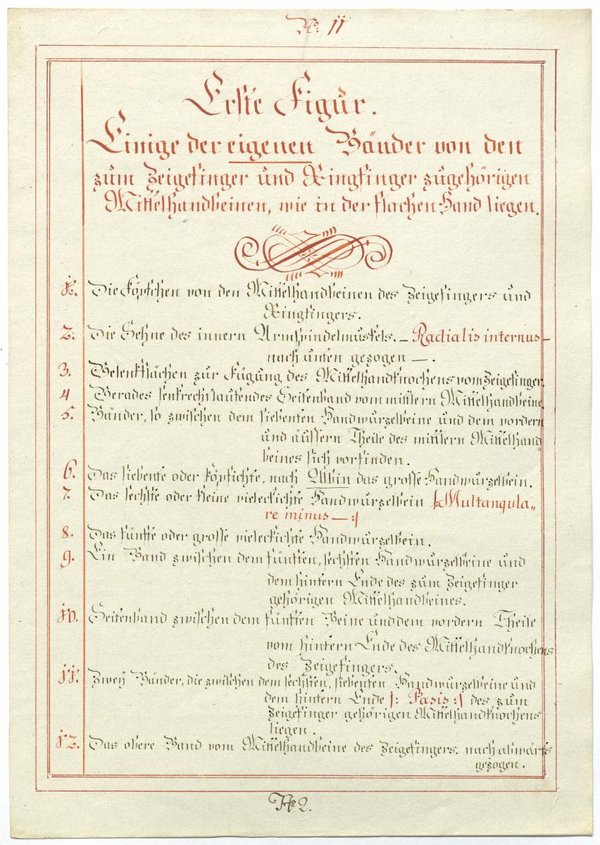 N: 11
Erste Figur.
Einige der eigenen Bänder von den
zum Zeigefinger und Ringfinger zugehörigen
Mittelhandbeinen, wie in der flachen Hand liegen.
1. Die Köpfchen von den Mittelhandbeinen des Zeigefingers und
Ringfingers.
2. Die Sehne des innern Armspindelmuskels. – Radialis internus –
nach unten gezogen –.
3. Gelenkflächen zur Fügung des Mittelhandknochens vom Zeigefinger.
4 Gerades senkrechtlaufendes Seitenband vom mittlern Mittelhandbeine.
5. Bänder, so zwischen dem siebenten Handwurzelbeine und dem vordern
und äussern Theile des mittlern Mittelhand
beines sich vorfinden.
6. Das siebente oder köpfichte, nach Albin das grosse Handwurzelbein.
7. Das sechste oder kleine vieleckichte Handwurzelbein |: Multangula-
re minus –:|
8. Das fünfte oder grosse vieleckichte Handwurzelbein.
9. Ein Band zwischen dem fünften, sechsten Handwurzelbeine und
dem hintern Ende des zum Zeigefinger
gehörigen Mittelhandbeines.
10. Seitenband zwischen dem fünften Beine und dem vordern Theile
vom hintern Ende des Mittelhandknochens
des Zeigefingers.
11. Zwey Bänder, die zwischen dem sechsten, siebenten Handwurzelbeine und
dem hintern Ende |: Basis :| des zum
Zeigefinger gehörigen Mittelhandknochens
liegen.
12. Das obere Band vom Mittelhandbeine des Zeigefingers. nach abwärts
gezogen.
2.